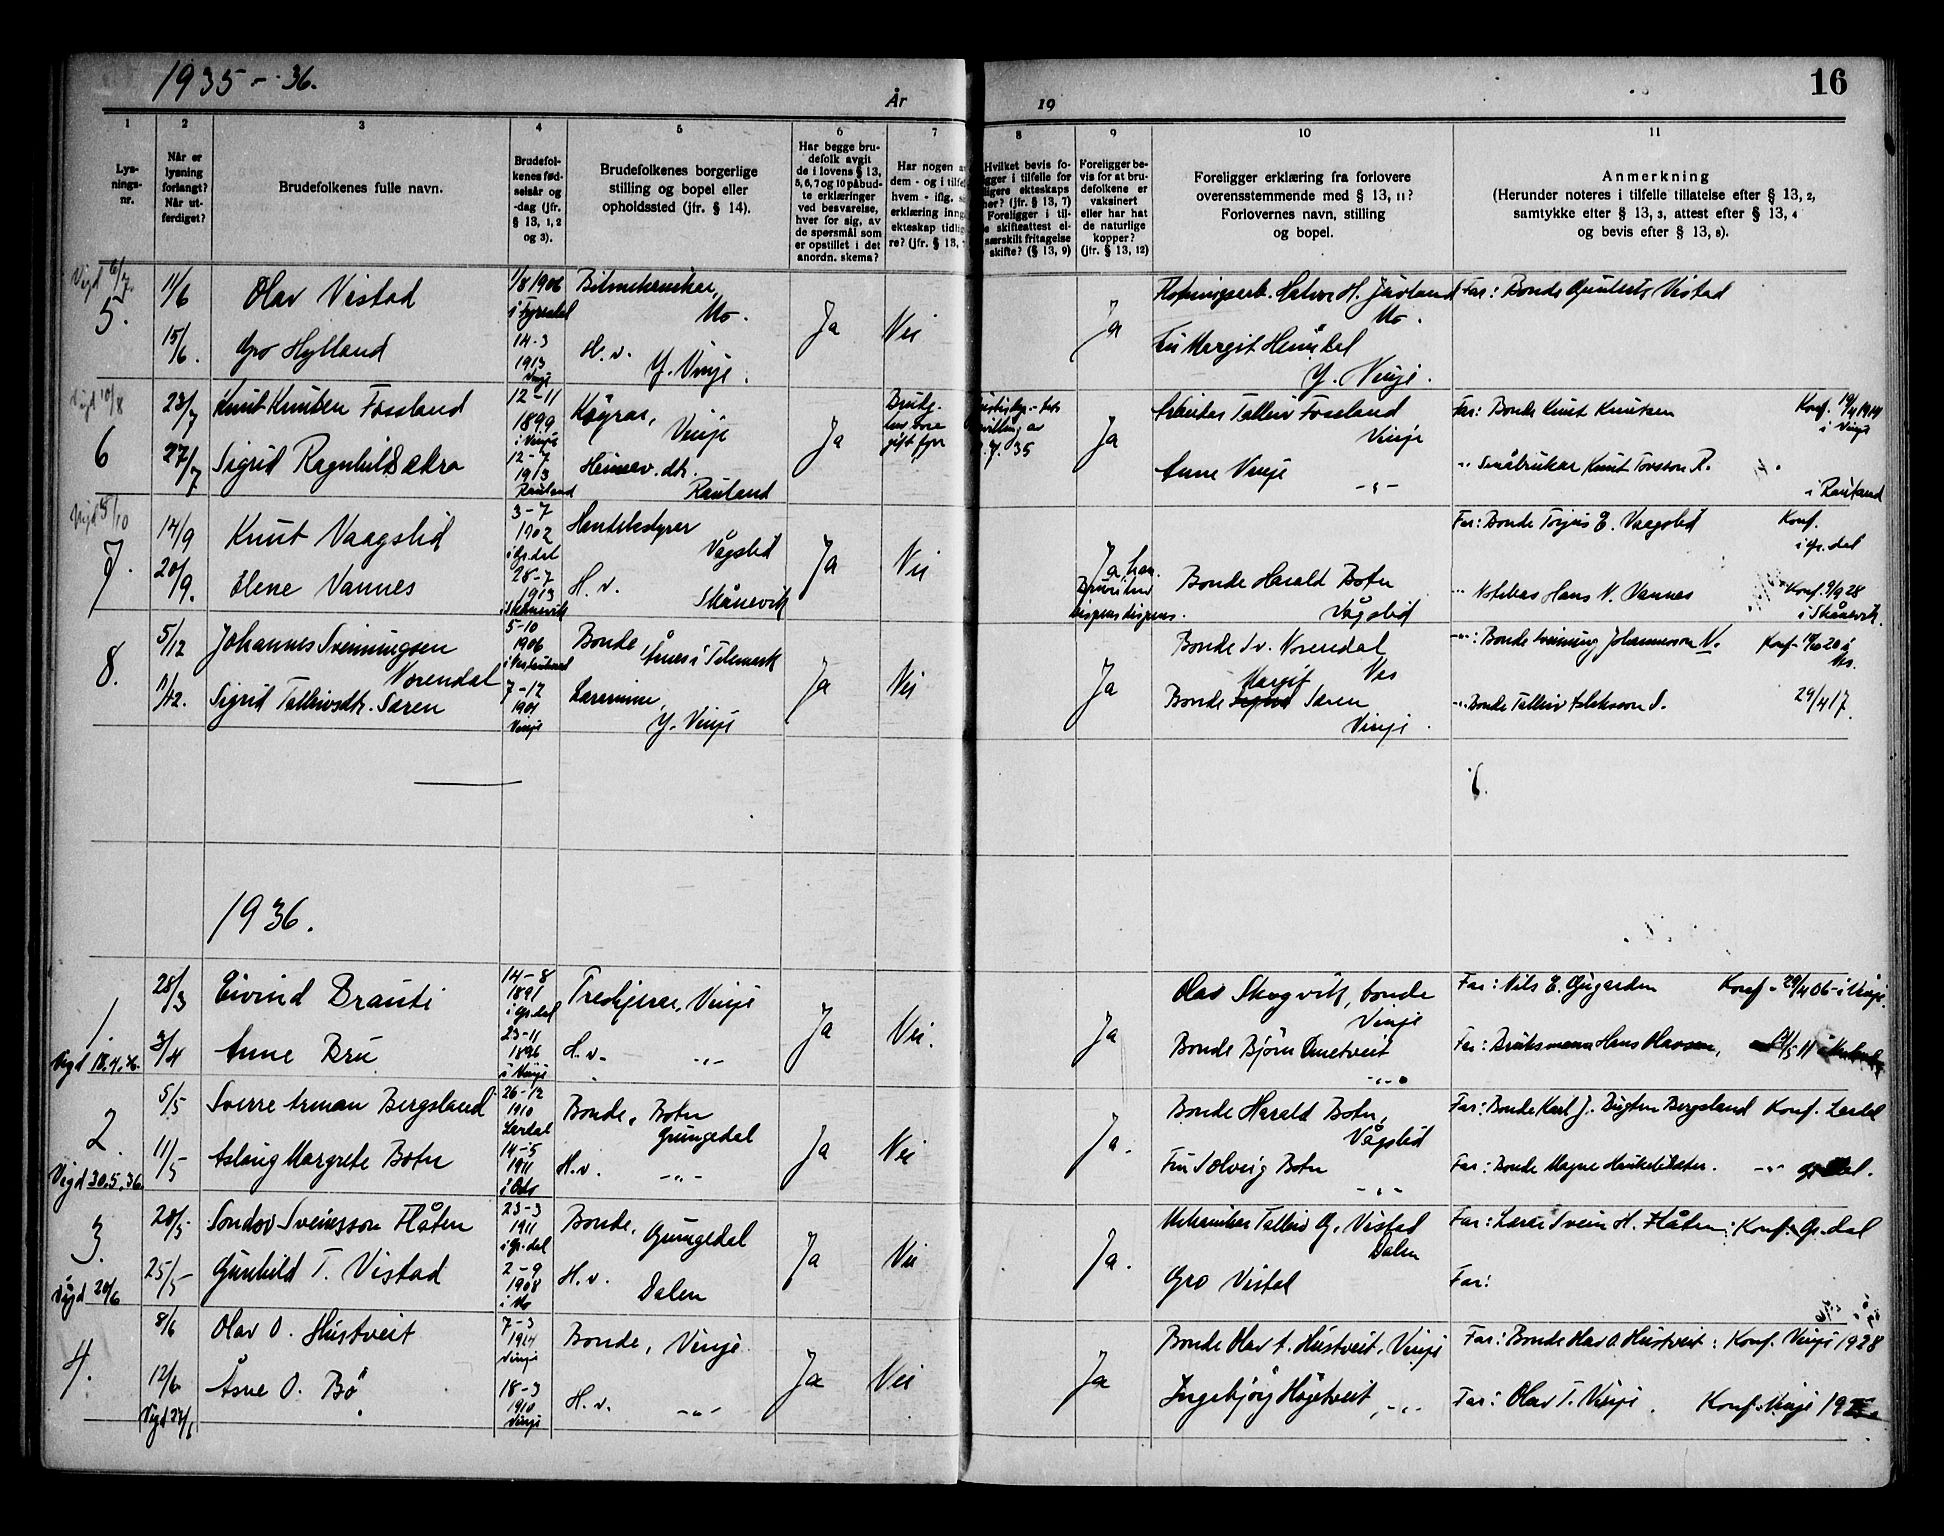 1935 - 36.
År
19
16
1
2
3
4
5
6
7
8
9
10
11
Lys-
nings-
nr.
Når er
lysning
forlangt?
Når ut-
ferdiget?
Brudefolkenes fulle navn.
Brudefol-
kenes fød-
selsår og
-dag (jfr.
§ 13, 1, 2
og 3).
Brudefolkenes borgerlige
stilling og bopel eller
opholdssted (jfr. § 14).
Har begge bru-
defolk avgit
de i lovens § 13,
5, 6, 7 og 10 påbud-
te erklæringer
ved besvarelse,
hver for sig, av
de spørsmål som
er opstillet i det
anordn. skema?
Har nogen a
dem - og i tilfel
hvem - iflg. s
erklæring inng
ekteskap tidlig
re? (jfr. § 13,
Hvilket bevis fo-
gger i tilfelle for
ligere ekteskaps
hør? (jfr. § 13, 7)
Foreligger i til-
e skifteattest el-
særskilt fritagelse
skifte? (§ 13, 9)
Foreligger be-
vis for at bru-
defolkene er
vaksinert
eller har hat
de naturlige
kopper?
(jfr. § 13, 12)
Foreligger erklæring fra forlovere
overensstemmende med § 13, 11?
Forlovernes navn, stilling
og bopel.
Anmerkning
(Herunder noteres i tilfelle tillatelse efter § 13, 2,
samtykke efter § 13, 3, attest efter § 13, 4
og bevis efter § 13, 8).
Vigd 6/7.
5.
11/6
Olav Vistad
1/8 1906
i Fyresdal
Bilmekaniker,
Mo.
Ja
Nei
Ja
Halvor H.
Mo.
Far: Bonde Vistad
15/6.
Gro Hylland
14-3
1913
Vinje
H. v.
Y. Vinje.
Fru Margit
Y. Vinje.
Vigd 10/8
6
23/7
Knut Knutsen Fossland
12-11
1899
i Vinje
Vinje
Ja
Brudg.
gift før
35
Ja
Arbeider Talleiv Fossland
Vinje
Far: Bonde Knut Knutsen
Konf. 19/4 1914
i Vinje
27/7
Sigrid Ragnhild
12-7
1913
Rauland
Heimev. dtr.
Rauland
Anne Vinje
-"-
-"- Småbruker Knut Torsson R.
i Rauland
Vigd 5/10
7.
14/9
Knut Vaagslid
3-7
1902
i Gr.dal
Handelsstyrer
Vågslid
Ja
Nei
Ja, han.
Bonde Harald Boten
Vågslid
Far: Bonde Torjus E. Vaagslid
Konf.
i Gr. dal
20/9.
Elene Vannes
28-7
1913
i Skånevik
H. v.
Skånevik
-"- Hans N. Vannes
Konf. 9/9 28
i Skånevik.
8.
5/12
Johannes Svenningsen
Norendal
5-10
1906
Bonde
i Telemark
Ja
Nei
Ja
Bonde Sv. Norendal
Nes
-"-: Bonde Svenning Johannesson N.
11/12.
Sigrid Tallivsdtr. Saren
7-12
1901
Vinje
Lærerinne,
Y. Vinje
Margit
Bonde Saren
Vinje.
-"- Bonde Talleiv S.
29/4 17.
1936.
1
28/3
Eivind Brauti
14-8
1891
i Gr.dal
Vinje
Ja
Nei.
Ja
Olav Skogvik, bonde
Vinje
Far: Nils E. Øygarden
Konf. 29/4 06 - i Vinje.
3/4
Anne Bru
23-11
1896
i Vinje
H. v.
-"-
Bonde Bjørn
-"-
Far: Bruksmann Hans Olavson,
Vigd 18.4.36.
2.
5/5
Sverre Arman Bergsland
26-12
1910
Lærdal
Bonde, Boten
Grungedal
Ja
Nei
Ja.
Bonde Harald Boten,
Vågslid
Far: Bonde Karl J. Bergsland
Konf. Lærdal
11/5
Aslaug Margrete Boten
14-5
1911
i Oslo
H.v.
-"-
Fru Solveig Boten
-"-
Far: Bonde Magne
-"-
Vigd 30.5.36.
3.
20/5.
Sondov Sveinsson Flåten
23-3
1911
i Gr.dal
Bonde,
Grungedal
Ja
Nei
Ja.
Mekaniker Talleiv G. Vistad
Dalen
Far: Lærer Svein H. Flåten: Konf. Gr. dal
25/5
Gunhild T. Vistad
2-9
1908
i Mo
H. v.
Dalen
Gro Vistad
Far:
Vigd 20/6
4.
8/6
Olav O. Hustveit
7-3
1914
Vinje
Bonde, Vinje
Ja
Nei
Ja
Bonde Olav A. Hustveit, Vinje
Far: Bonde Olav O. Hustveit: Konf. Vinje 1928
12/6
Åsne O. Bø
18-3
1910
Vinje
H. v.
-"-
Ingebjørg Høgetveit, -"-
Far: Olav T. Vinje.
Konf. Vinje
Vigd 27/6